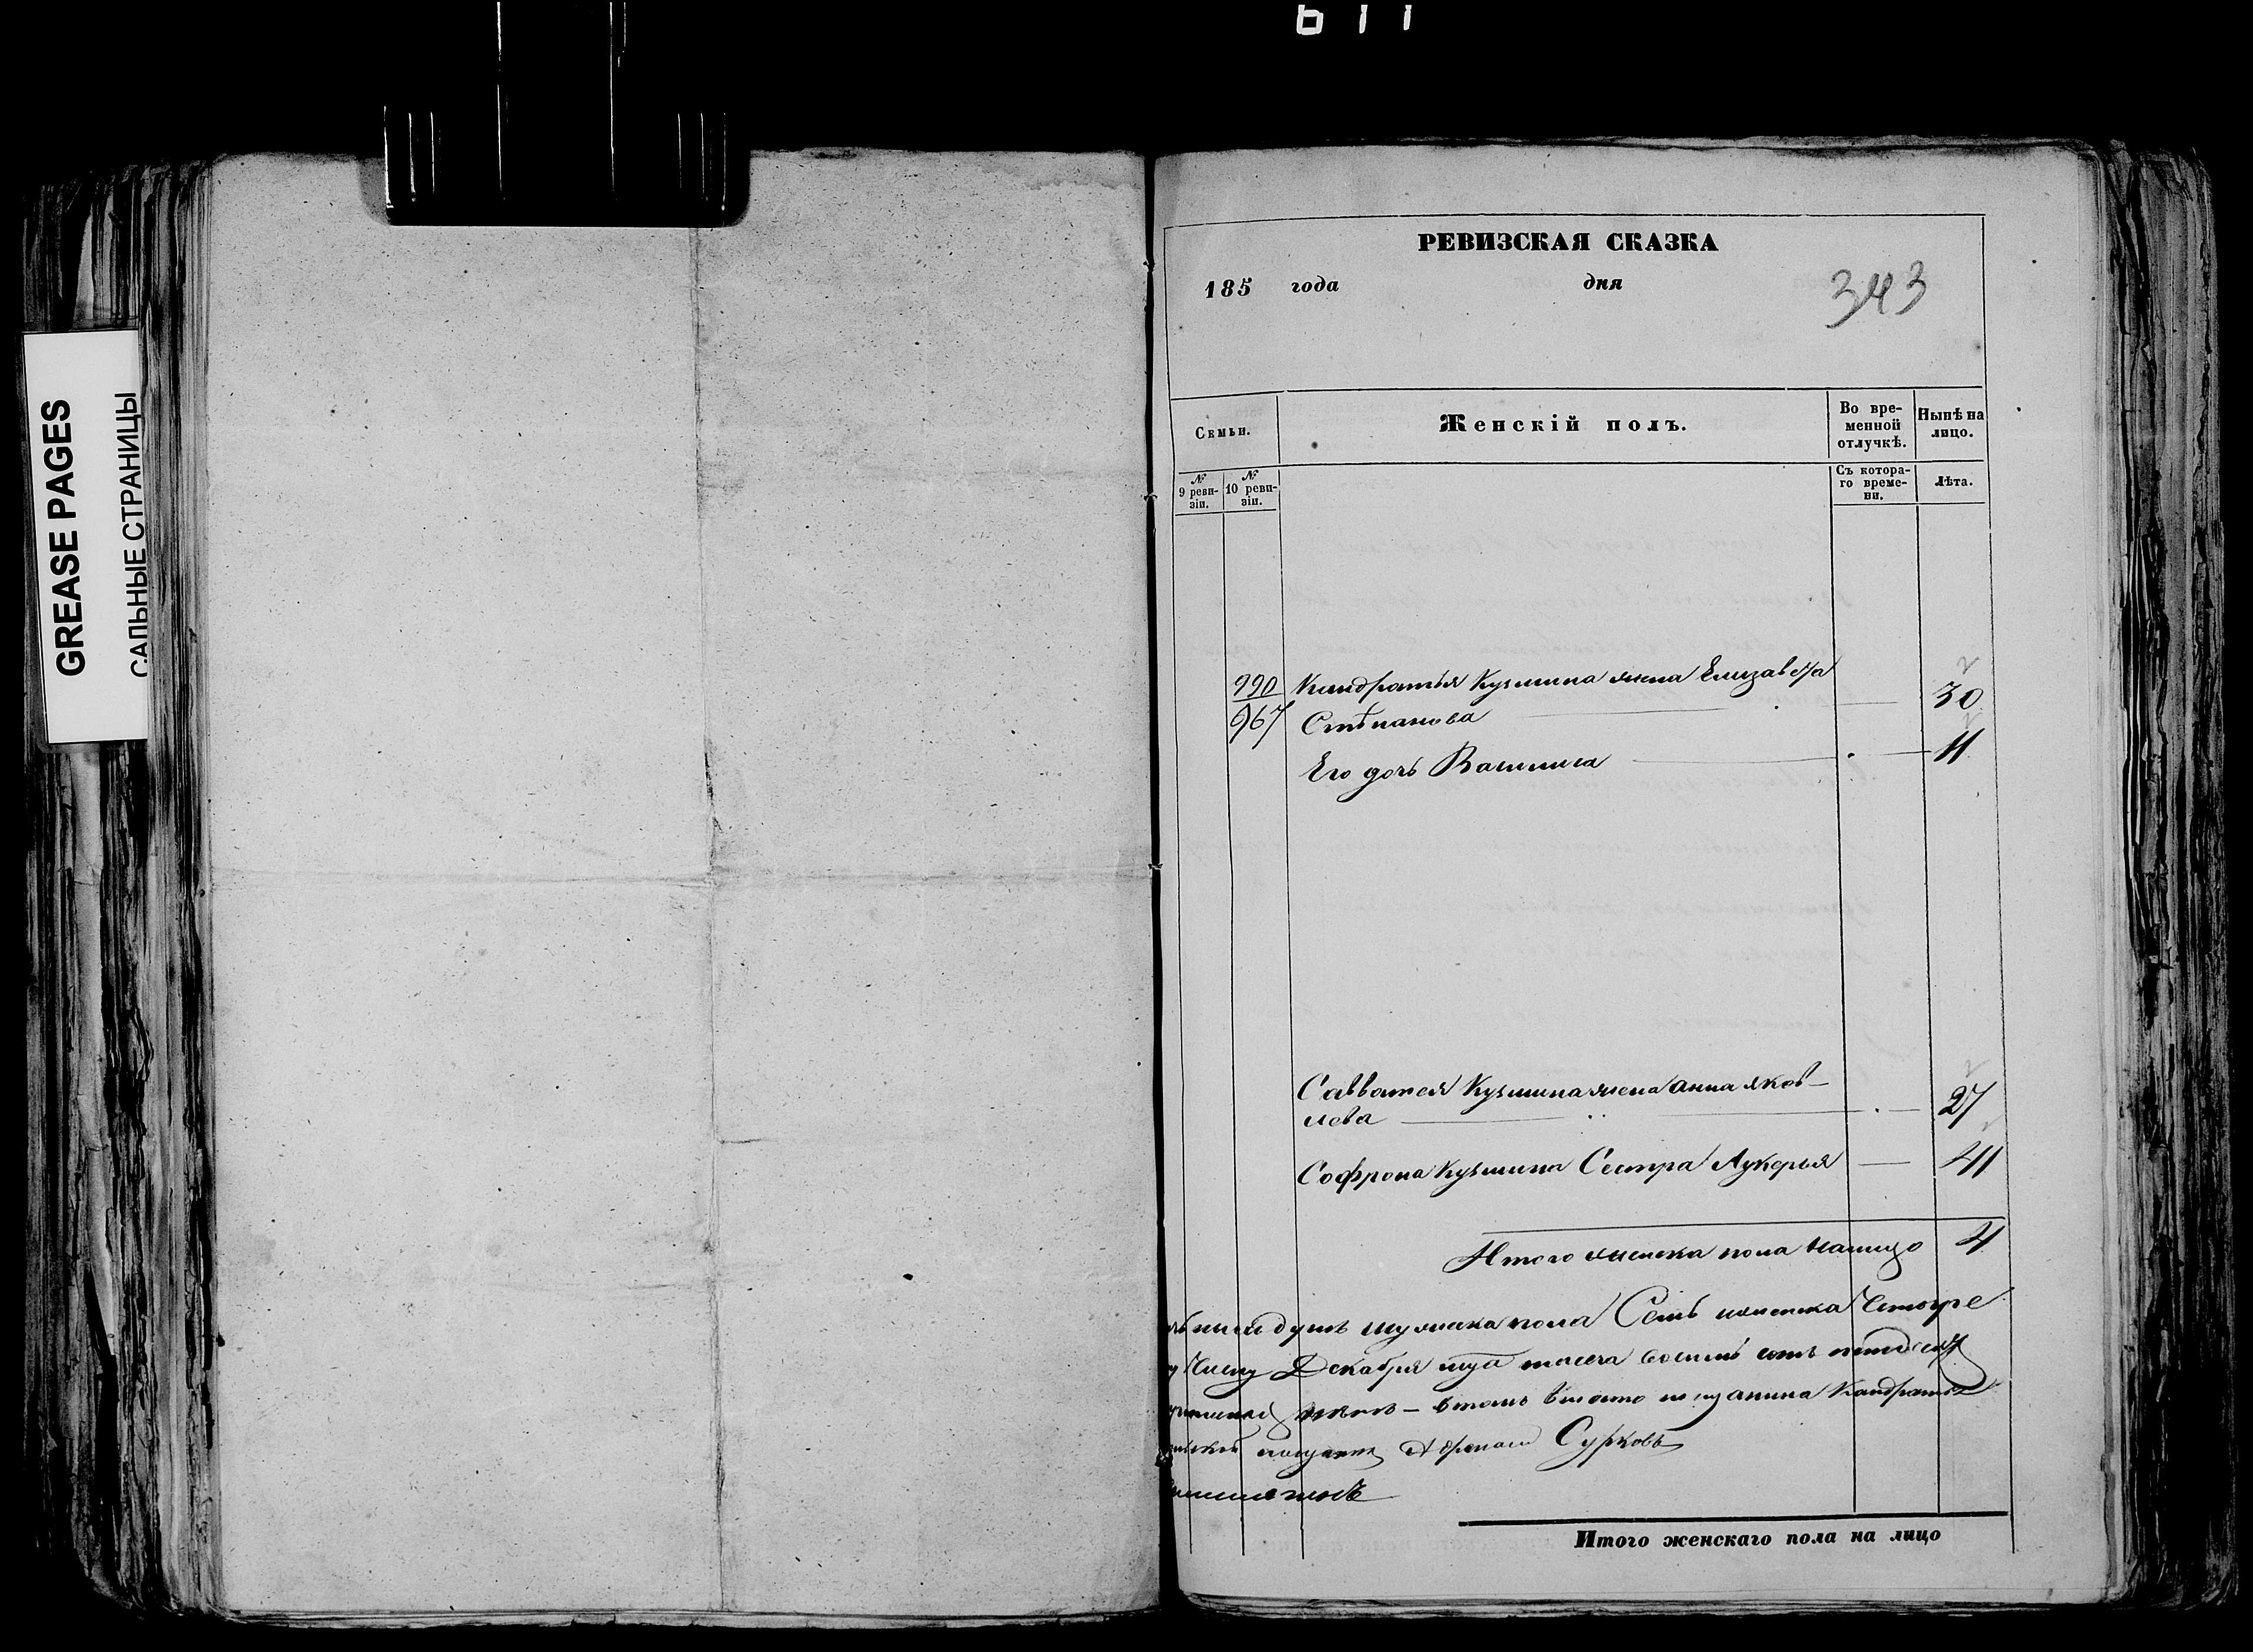 611
GREASE PAGES
САЛЬНЫЕ СТРАНИЦЫ
РЕВИЗСКАЯ СКАЗКА
185 года дня
343
Семьи.
Женскій полъ.
Во вре-
менной
отлучкѣ.
Нынѣ на
лицо.
№
9 реви-
зіи.
№
10 реви-
зіи.
Съ котора-
го време-
ни.
Лѣта.
990 Кандратья Кузмина жена Елизавета
967 Степанова 30
Его дочь Василиса 11
Савватея Кузмина жена Анна Яков-
лева 27
Софрона Кузмина Сестра Лукерья 41
Итого женска пола налицо 4
душъ мужеска пола Семь и женска Четыре
Декабря
втомъ вместо мещанина Кандратья
Сурковъ
Итого женскаго пола на лицо